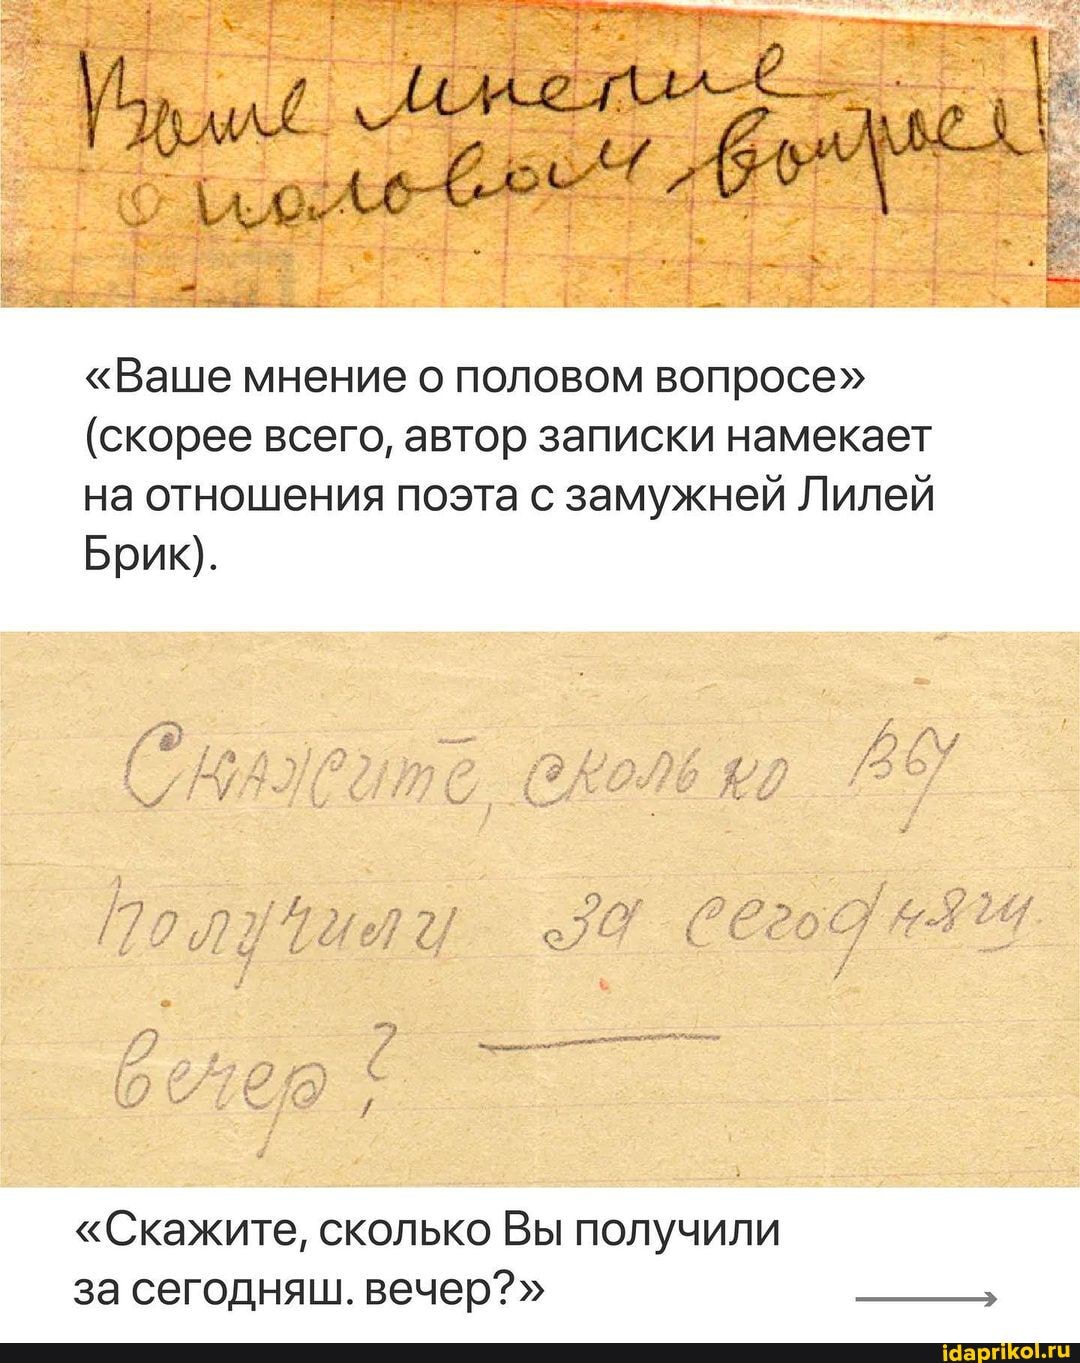 Ваше мнение
о половом вопросе!
«Ваше мнение о половом вопросе»
(скорее всего, автор записки намекает
на отношения поэта с замужней Лилей
Брик).
Скажите, сколько Вы
получили за сегодняш.
вечер?
«Скажите, сколько Вы получили
за сегодняш. вечер?»
idaprikol.ru